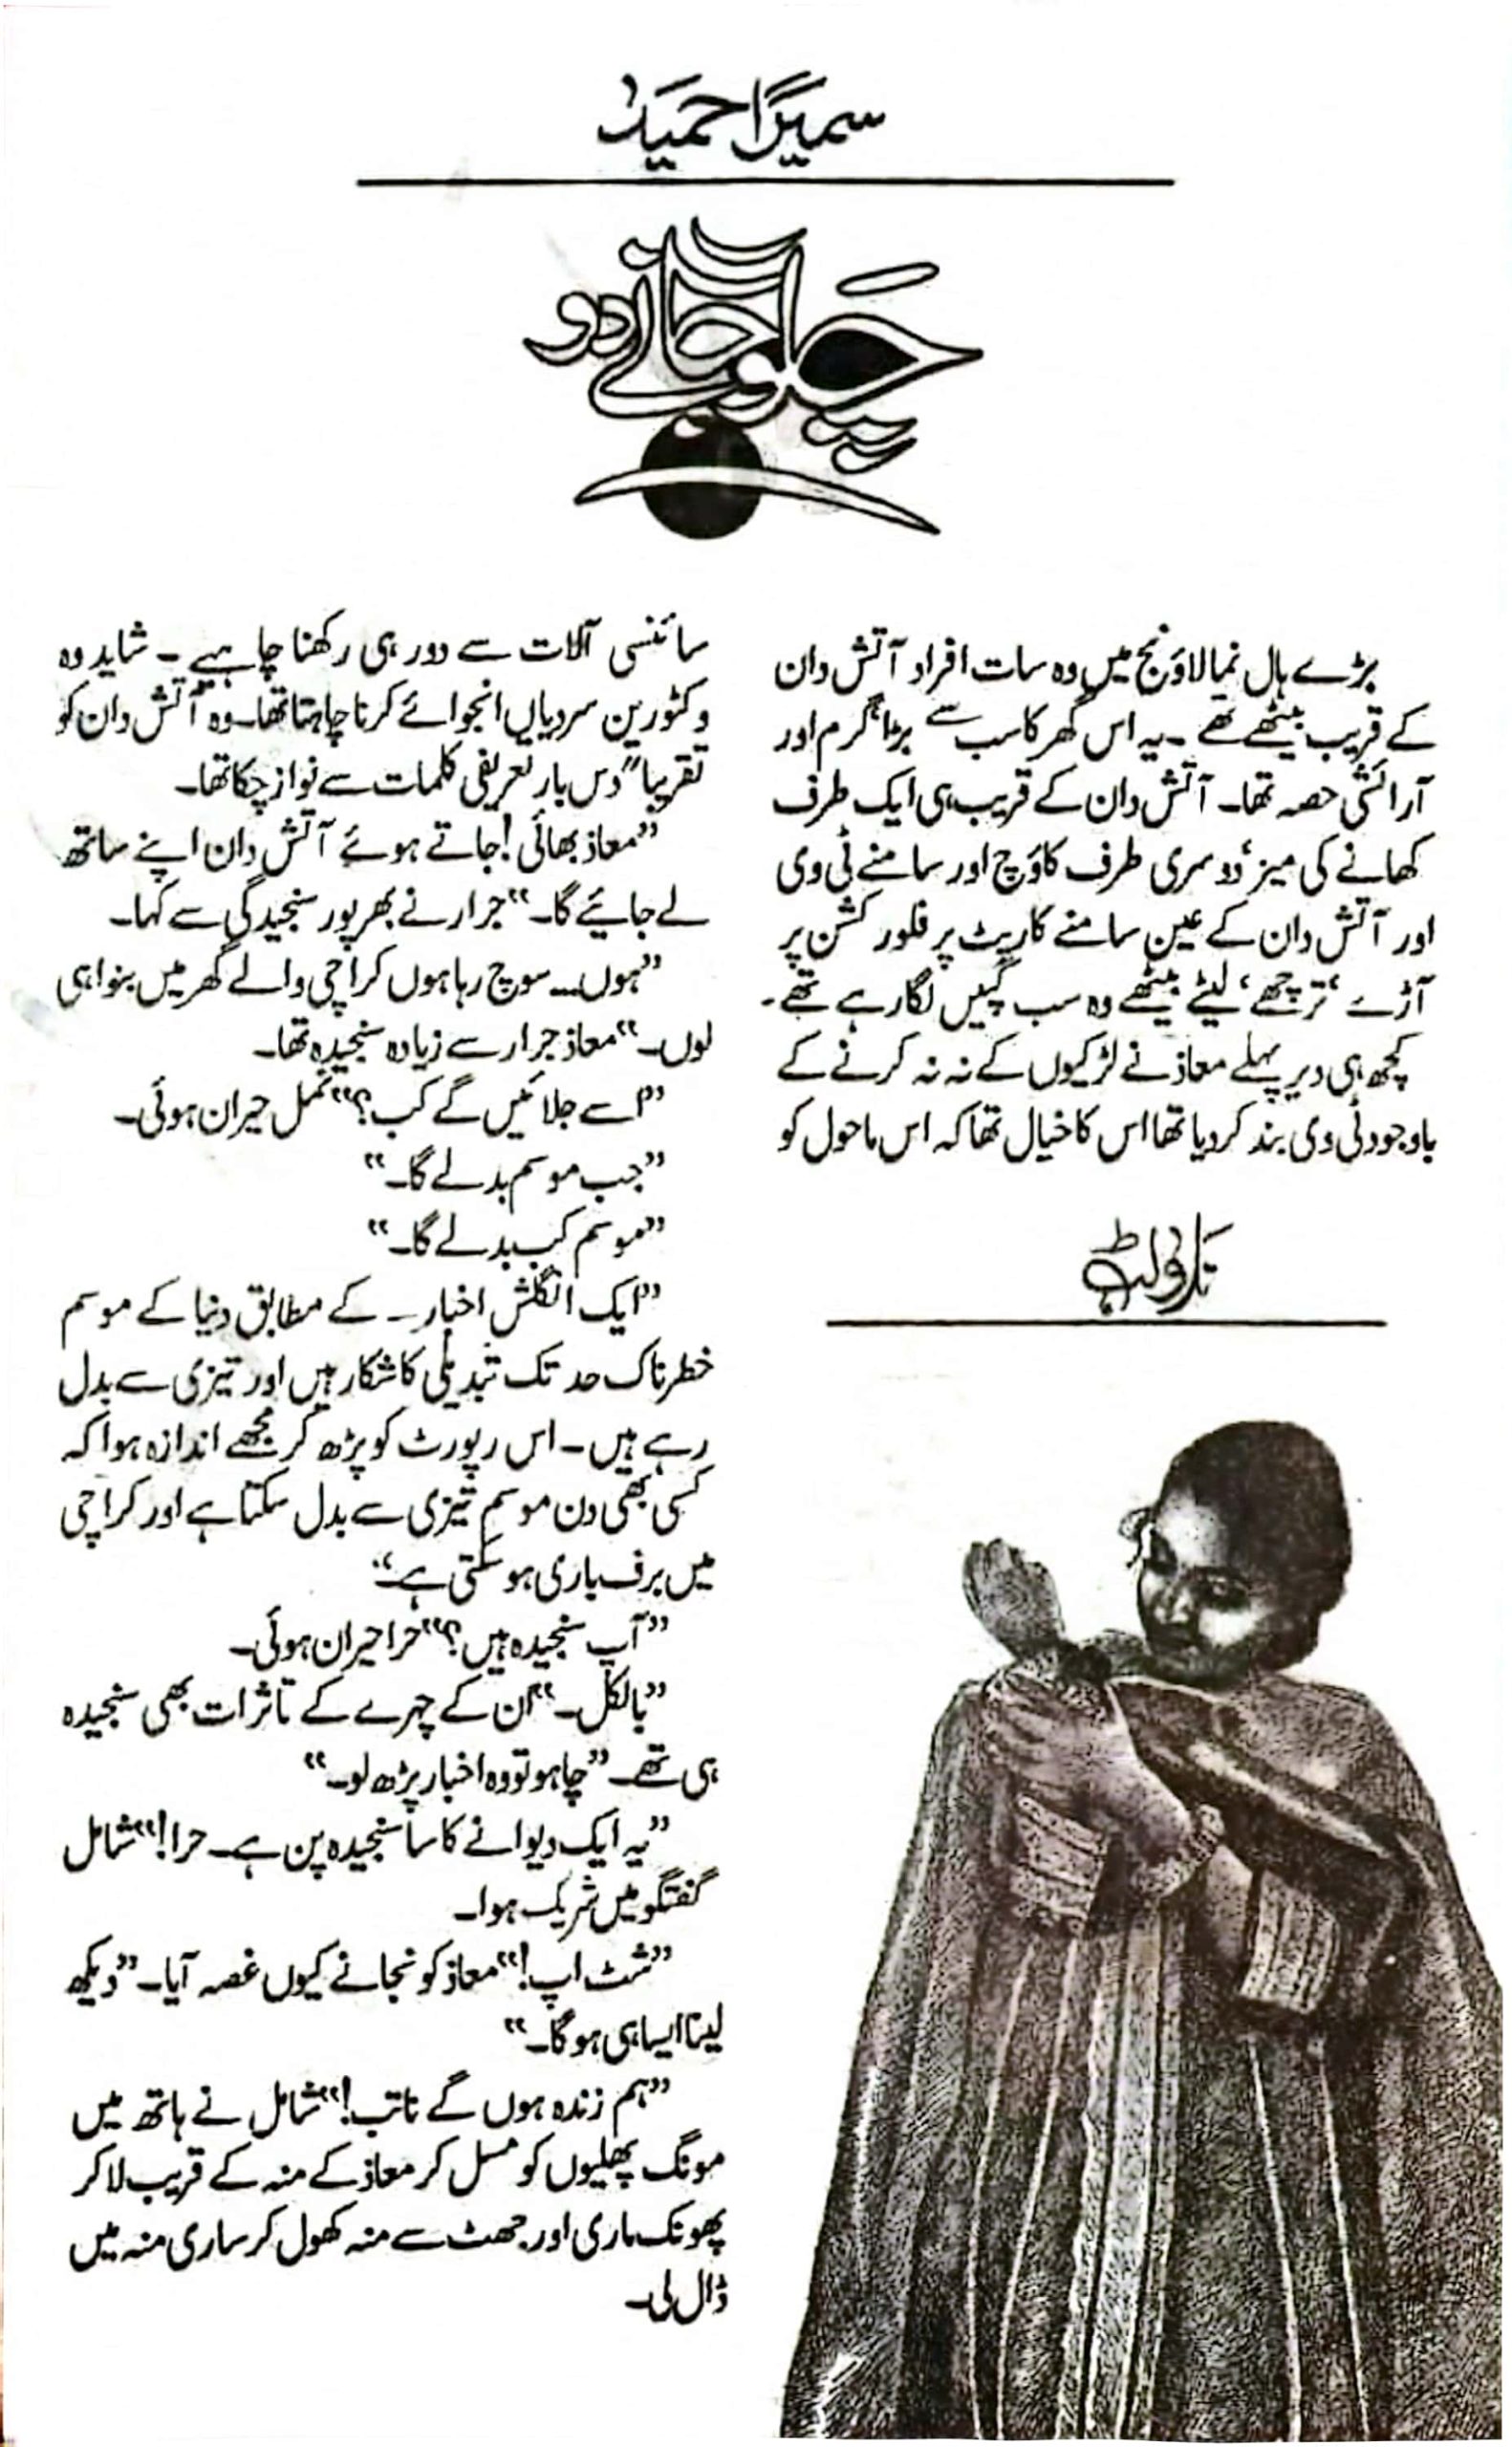 سمیرا حمید
چلو جانے دو
بڑے ہال نما لاؤنج میں وہ سات افراد آتش دان
کے قریب بیٹھے تھے۔ یہ اس گھر کا سب سے بڑا گرم اور
آرائشی حصہ تھا۔ آتش دان کے قریب ہی ایک طرف
کھانے کی میز، دوسری طرف کاؤچ اور سامنے ٹی وی
اور آتش دان کے عین سامنے کارپٹ پر فلور کشن پر
آڑے، ترچھے، لیٹے بیٹھے وہ سب گپیں لگا رہے تھے۔
کچھ ہی دیر پہلے معاذ نے لڑکیوں کے نہ نہ کرنے کے
باوجود ٹی وی بند کر دیا تھا اس کا خیال تھا کہ اس ماحول کو
ناولٹ
سائنسی آلات سے دور ہی رکھنا چاہیے۔ شاید وہ
وکٹورین سردیاں انجوائے کرنا چاہتا تھا۔ وہ آتش دان کو
تقریبا" دس بار تعریفی کلمات سے نواز چکا تھا۔
"معاذ بھائی! جاتے ہوئے آتش دان اپنے ساتھ
لے جائیے گا۔" جرار نے بھرپور سنجیدگی سے کہا۔
"ہوں... سوچ رہا ہوں کراچی والے گھر میں بنوا ہی
لوں۔" معاذ جرار سے زیادہ سنجیدہ تھا۔
"اسے جلائیں گے کب؟" نمل حیران ہوئی۔
"جب موسم بدلے گا۔"
"موسم کب بدلے گا۔"
"ایک انگلش اخبار۔ کے مطابق دنیا کے موسم
خطرناک حد تک تبدیلی کا شکار ہیں اور تیزی سے بدل
رہے ہیں۔ اس رپورٹ کو پڑھ کر مجھے اندازہ ہوا کہ
کسی بھی دن موسم تیزی سے بدل سکتا ہے اور کراچی
میں برف باری ہو سکتی ہے۔"
"آپ سنجیدہ ہیں؟" حرا حیران ہوئی۔
"بالکل۔" ان کے چہرے کے تاثرات بھی سنجیدہ
ہی تھے۔ "چاہو تو وہ اخبار پڑھ لو۔"
"یہ ایک دیوانے کا سا سنجیدہ پن ہے۔ حرا!" شامل
گفتگو میں شریک ہوا۔
"شٹ اپ!" معاذ کو نجانے کیوں غصہ آیا۔ "دیکھ
لینا ایسا ہی ہو گا۔"
"ہم زندہ ہوں گے نا تب!" شامل نے ہاتھ میں
مونگ پھلیوں کو مسل کر معاذ کے منہ کے قریب لا کر
پھونک ماری اور جھٹ سے منہ کھول کر ساری منہ میں
ڈال لی۔